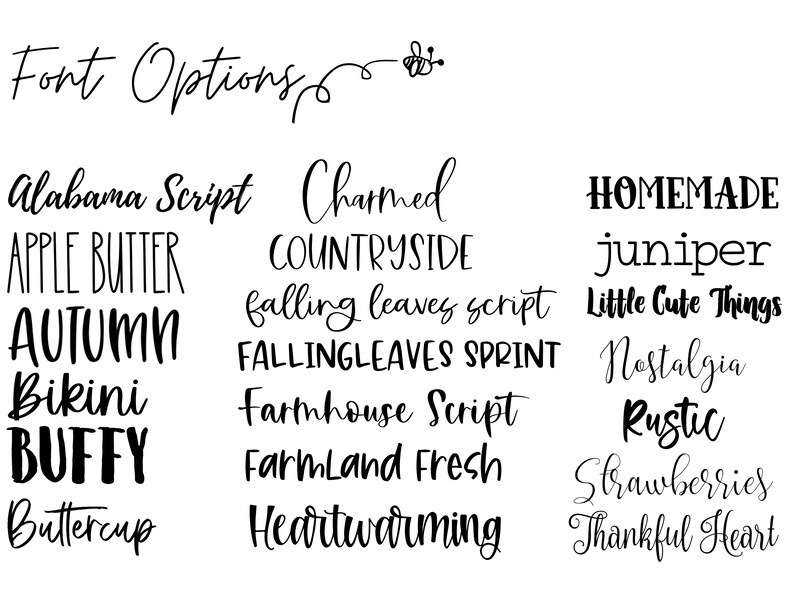 Font Options
Alabama Script
APPLE BUTTER
AUTUMN
Bikini
BUFFY
Buttercup
Charmed
COUNTRYSIDE
falling leaves script
FALLINGLEAVES SPRINT
Farmhouse Script
Farmland Fresh
Heartwarming
HOMEMADE
juniper
Little Cute Things
Nostalgia
Rustic
Strawberries
Thankful Heart